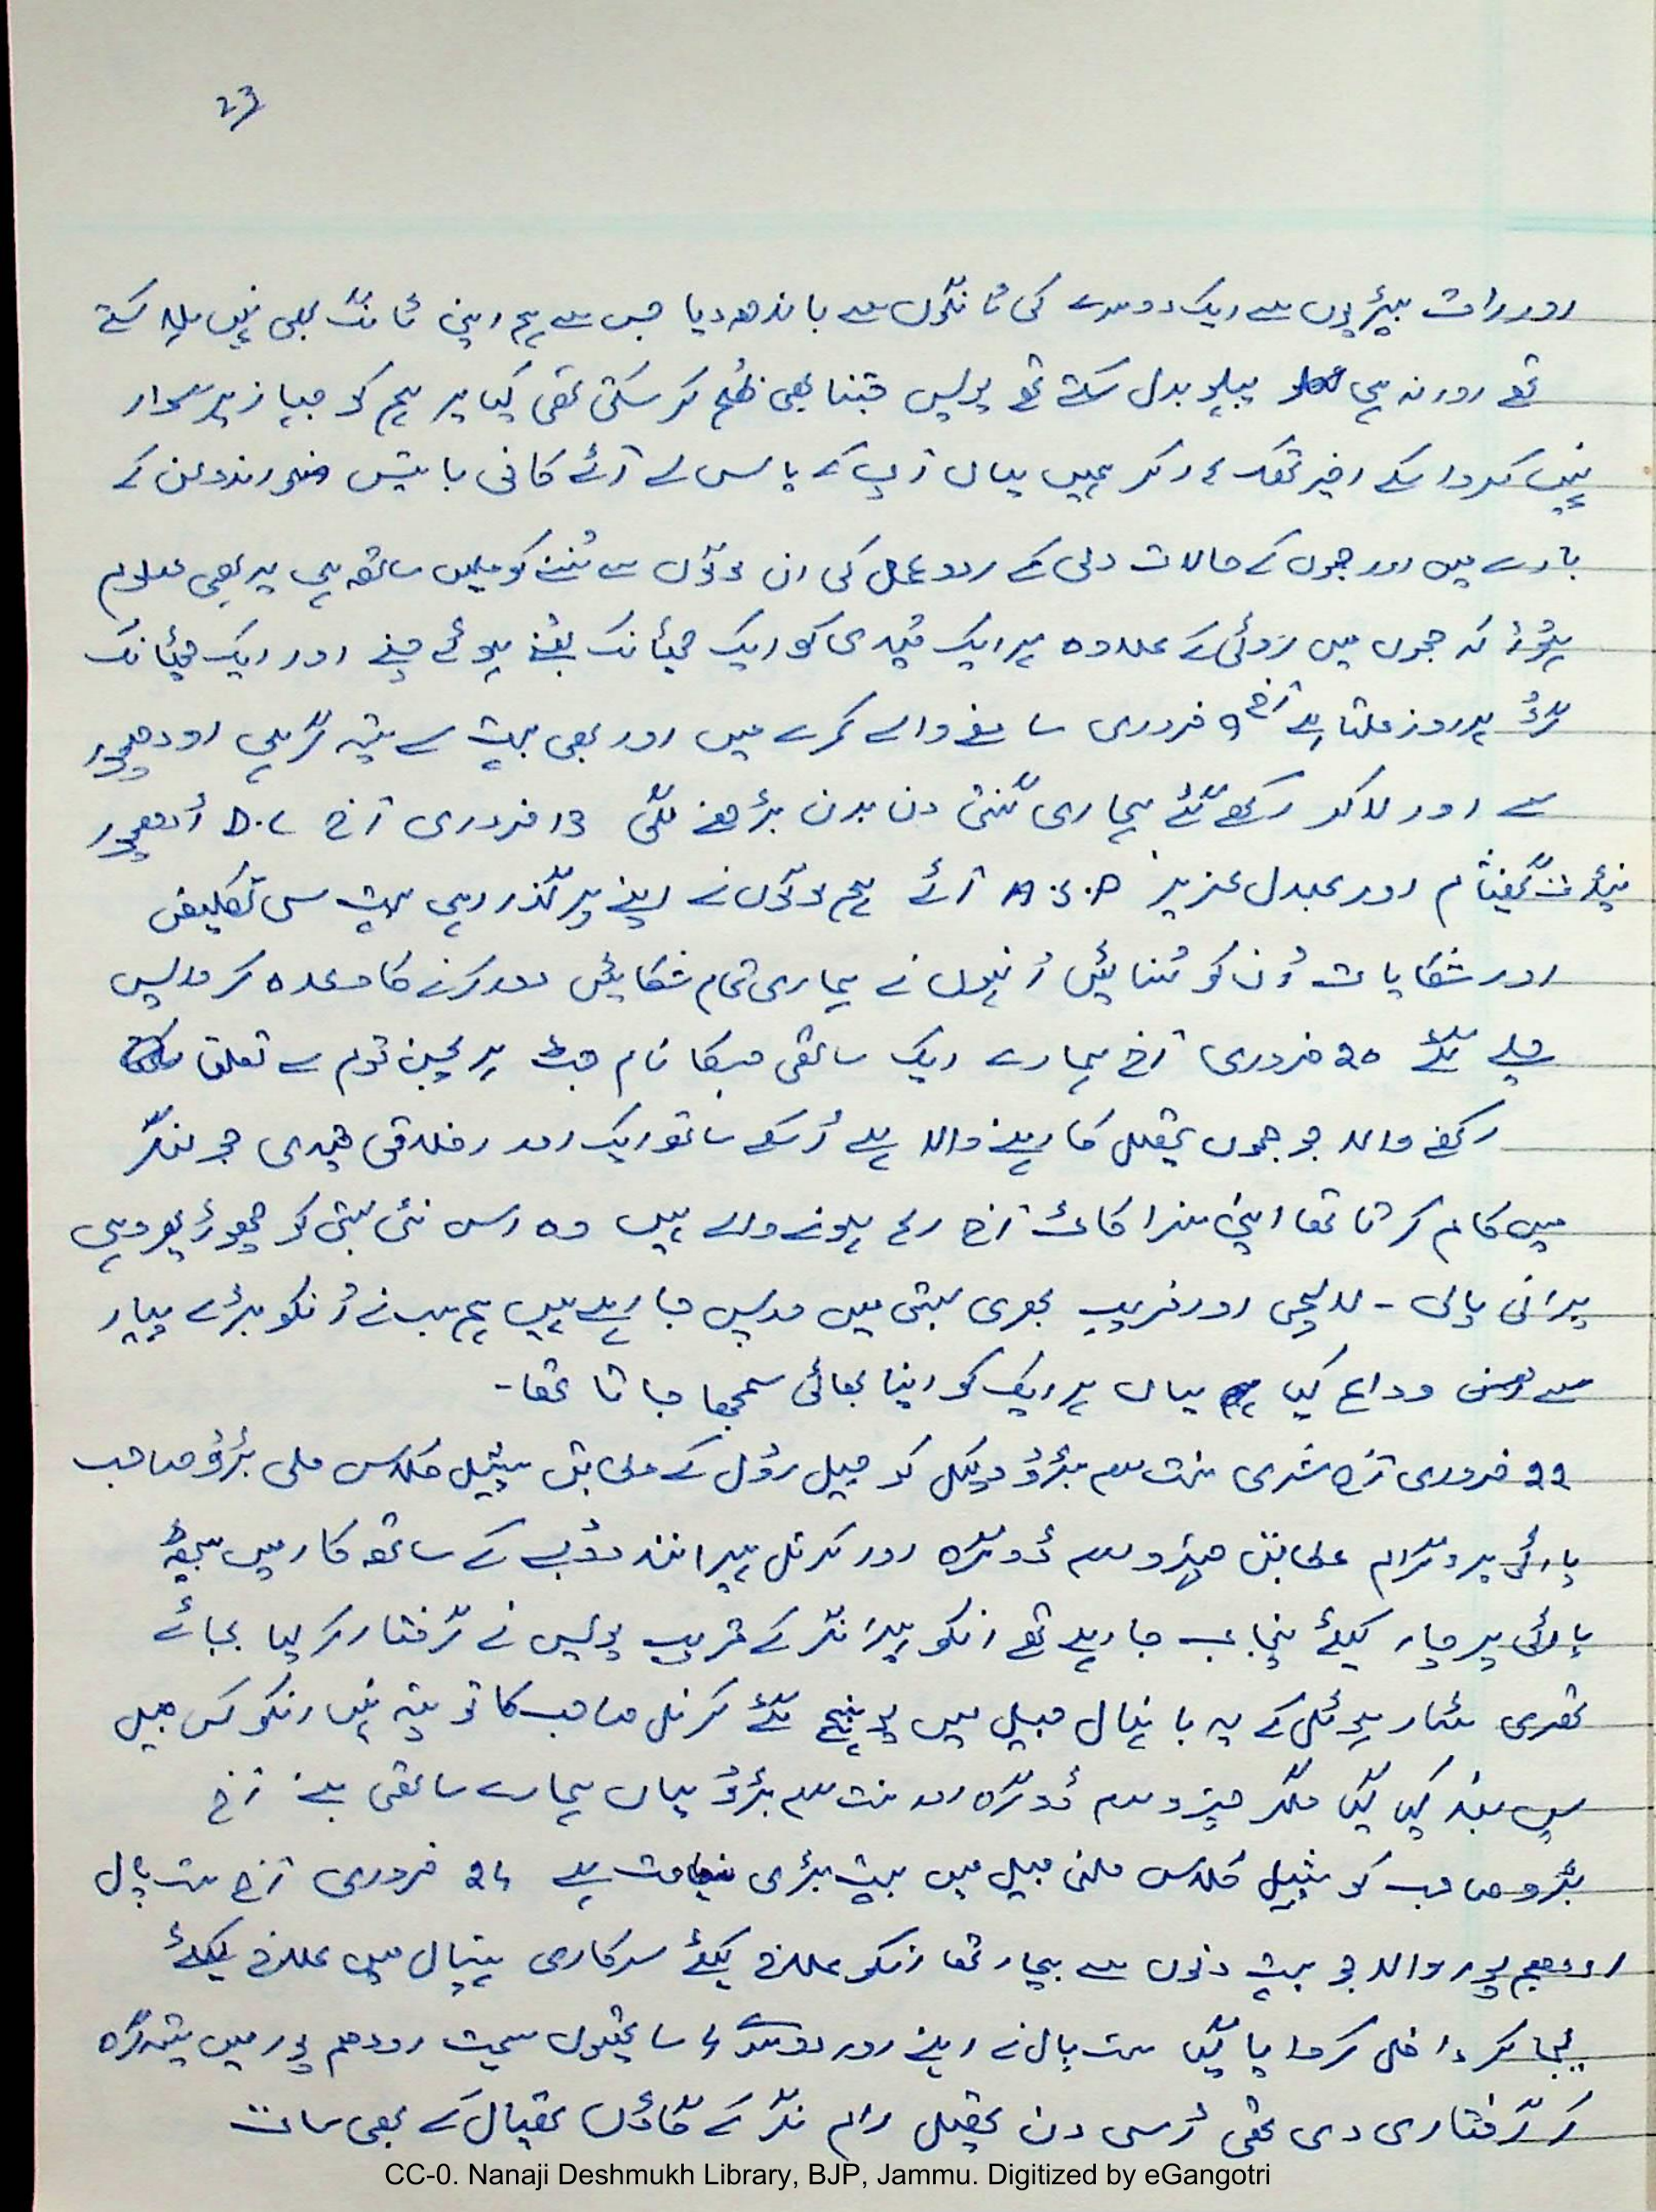 23
اور رات بیڑیوں سے ایک دوسرے کی ٹانگوں سے باندھ دیا جس سے ہم اپنی ٹانگ بھی نہیں ہلا سکتے
تھے اور نہ ہی پہلو بدل سکتے تھے پولیس جتنا بھی ظلم کر سکتی تھی کیا پر ہم کو
نہیں کروا سکے اخیر تھک کر ہمیں یہاں آپ کے پاس لے آئے کافی باتیں اندولن کے
بارے میں اور جموں کے حالات دلی کے ردوعمل کی ان لوگوں سے سُننے کو ملیں ساتھ ہی یہ بھی معلوم
ہوا کہ جموں میں روٹی کے علاوہ ہر ایک قیدی کو ایک چھٹانک بھُنے ہوئے چنے اور ایک چھٹانک
گُڑ ہر روز ملتا ہے آج 9 فروری سامنے والے کمرے میں اور بھی بہت سے ستیہ گرہی اودھمپور
سے اور لاکر رکھے گئے ہماری گنتی دن بدن بڑھنے لگی 13 فروری آج D.C اُدھمپور
پنڈت اور عبدل عزیز آئے ہم لوگوں نے اپنے پر گذر رہی بہت سی تکلیفیں
اور شکایات اُن کو سُنائیں اُنہوں نے ہماری تمام شکایتیں دور کرنے کا وعدہ کر واپس
چلے گئے 20 فروری آج ہمارے ایک ساتھی جسکا نام ہریجن قوم سے تعلق
رکھنے والا جو جموں تحصیل کا رہنے والا ہے اُسکے ساتھ ایک اور اخلاقی قیدی جو لنگر
میں کام کرتا تھا اپنی سزا کاٹ آج رہا ہونے والے ہیں وہ اس نئی بستی کو چھوڑ پھر وہی
پرانی پاپی - لالچی اور فریب بھری بستی میں واپس جا رہے ہیں ہم سب نے اُنکو بڑے پیار
سے وداع کیا یہاں ہر ایک کو اپنا بھائی سمجھا جاتا تھا -
22 فروری آج شری سنت رام بڑو وکیل کو جیل رول کے مطابق سپیشل کلاس ملی بڑو صاحب
پارٹی پروگرام مطابق رام ڈوگرہ اور کرنل پیرانند دوبے کے ساتھ کار میں بیٹھ
پارٹی پرچار کیلئے پنجاب جا رہے تھے انکو ہیرانگر کے قریب پولیس نے گرفتار کر لیا بجائے
تھری سٹار ہوٹل کے یہ بانہال جیل میں پہنچ گئے کرنل صاحب کا تو پتہ نہیں انکو کس جیل
میں بند کیا گیا مگر رام ڈوگرہ اور سنت رام بڑو یہاں ہمارے ساتھی بنے آج
بڑو صاحب کو سپیشل کلاس ملنی جیل میں بہت بڑی بات ہے 24 فروری آج ست پال
اودھم پور والا جو بہت دنوں سے بیمار تھا انکو علاج کیلئے سرکاری ہسپتال میں علاج کیلئے
لیجا کر داخل کروایا گیا ست پال نے اپنے اور دوسرے 4 ساتھیوں سمیت اودھم پور میں ستیہ گرہ
کر گرفتاری دی تھی اُسی دن تحصیل رام نگر کے گاؤں تھیال کے بھی سات
CC-0. Nanaji Deshmukh Library, BJP, Jammu. Digitized by eGangotri